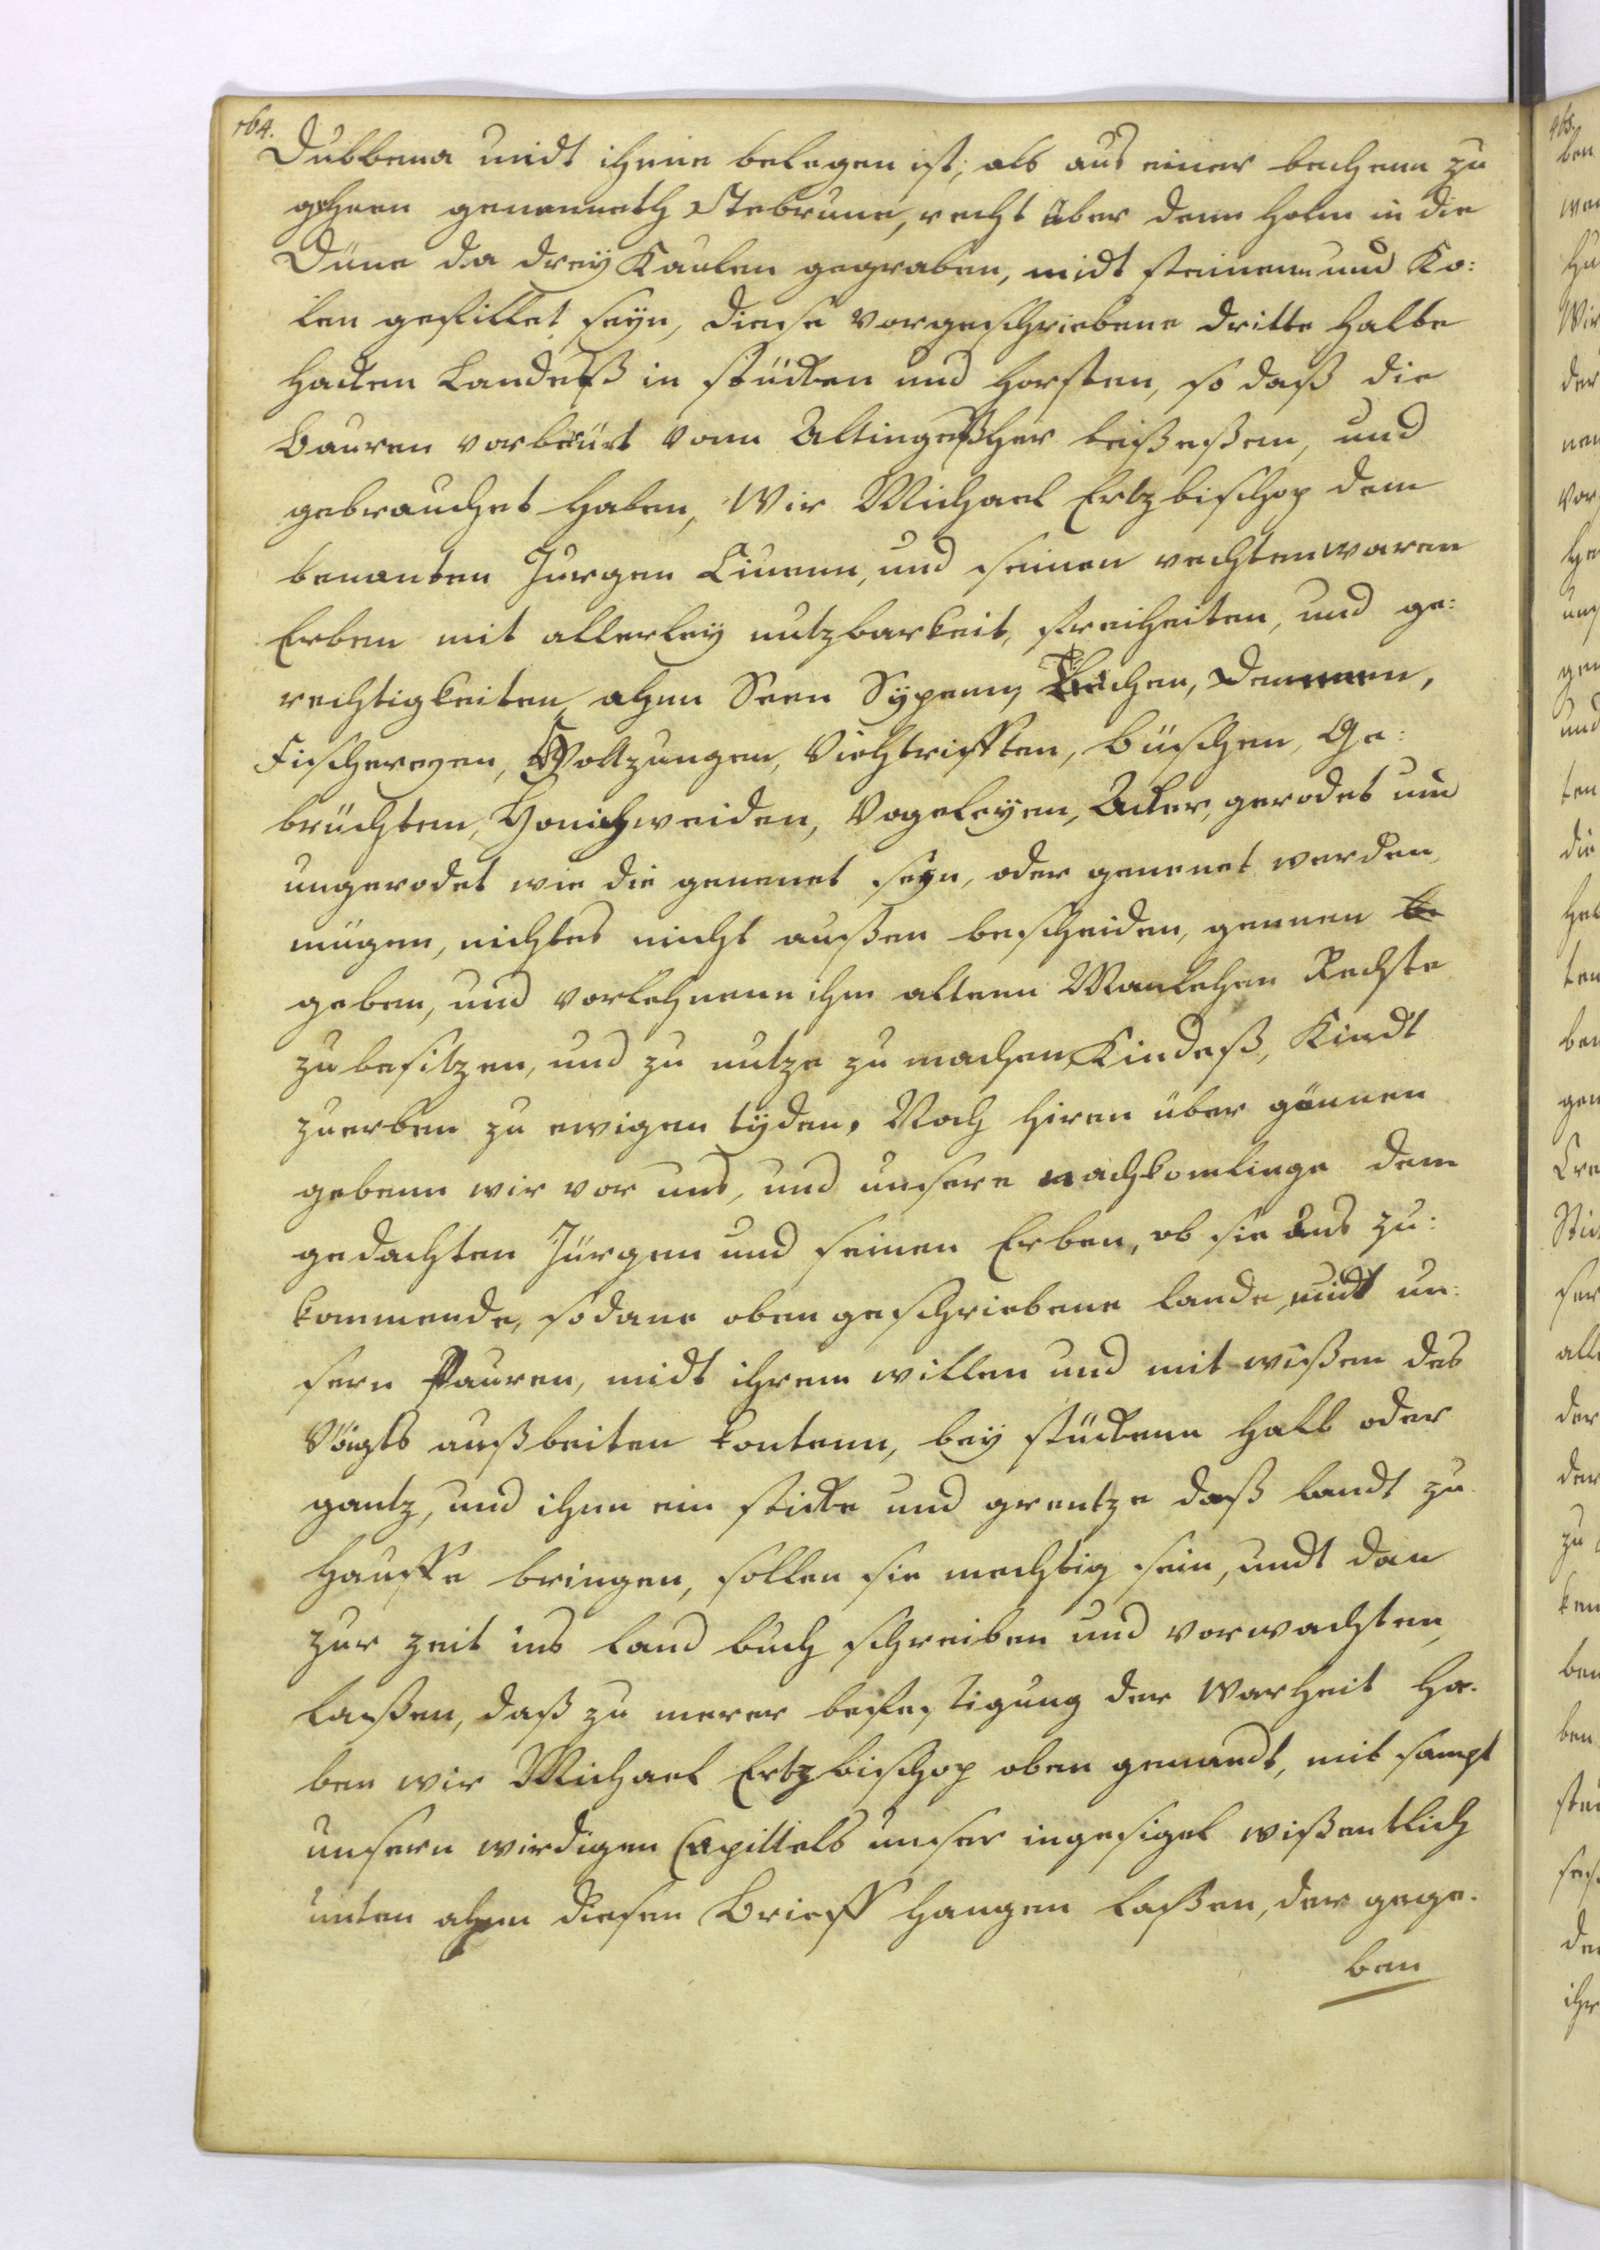 164.
Dubbena midt ihme belegen ist, als aus einer bechenn zu
gehnen genanneth Stebrune, recht über denn holm in die
Düne da drey Kaulen gegraben, midt steinenn und Ko:
len gefillet seyn, diese vorgeschriebene dritte halbe
hacken Landeß in stücken und horsten, so daß die
Bauren vorbeürt vonn Altingeßher beseßen, und
gebrauchet haben, Wir Michael Ertzbischop dem
benanten Jurgen Liuenn, und seinen rechten waren
Erben mit allerley nutzbarkeit, freiheiten, und ge:
rechtigkeiten ahnn Seen Sypenn, Bächen, Demmen,
Fischereyen, Holtzungen, Viehtrifften, büschen, Ge:
brüchten, Honichweiden, Vogeleyen, Acker, gerodet und
ungerodet wie die genenet seyn, oder genenet werden
mügen, nichtes nicht außen bescheiden, gennen
geben, und vorlehnenn ihm altenn Manlehen Rechte
zu besitzen, und zu nutze zu machen Kindeß, Kindt
zuerben zu ewigen tyden, Noch hiren über gönnen
gebenn wir vor uns, und unsere nachkomlinge dem
gedachten Jürgen und seinen Erben, ob sie aus zu:
kommende, sodane oben geschriebene lande, midt un:
sern Pauren, midt ihrem willen und mit wißen des
Vöigts außbeiten kontenn, bey stückenn halb oder
gantz, und ihnn ein sticke und grentze daß landt zu
hauffe bringen, sollen sie mechtig sein, undt dan
zur zeit ins land buch schreiben und vorwachten
laßen, daß zu merer befestigung der Warheit ha:
ben wir Michael Ertzbischop oben genandt, mit sampt
unsern wirdigen Capittels unser ingesigel wißentlich
unten ahnn diesen Brieff hangen laßen, der gege:
ben